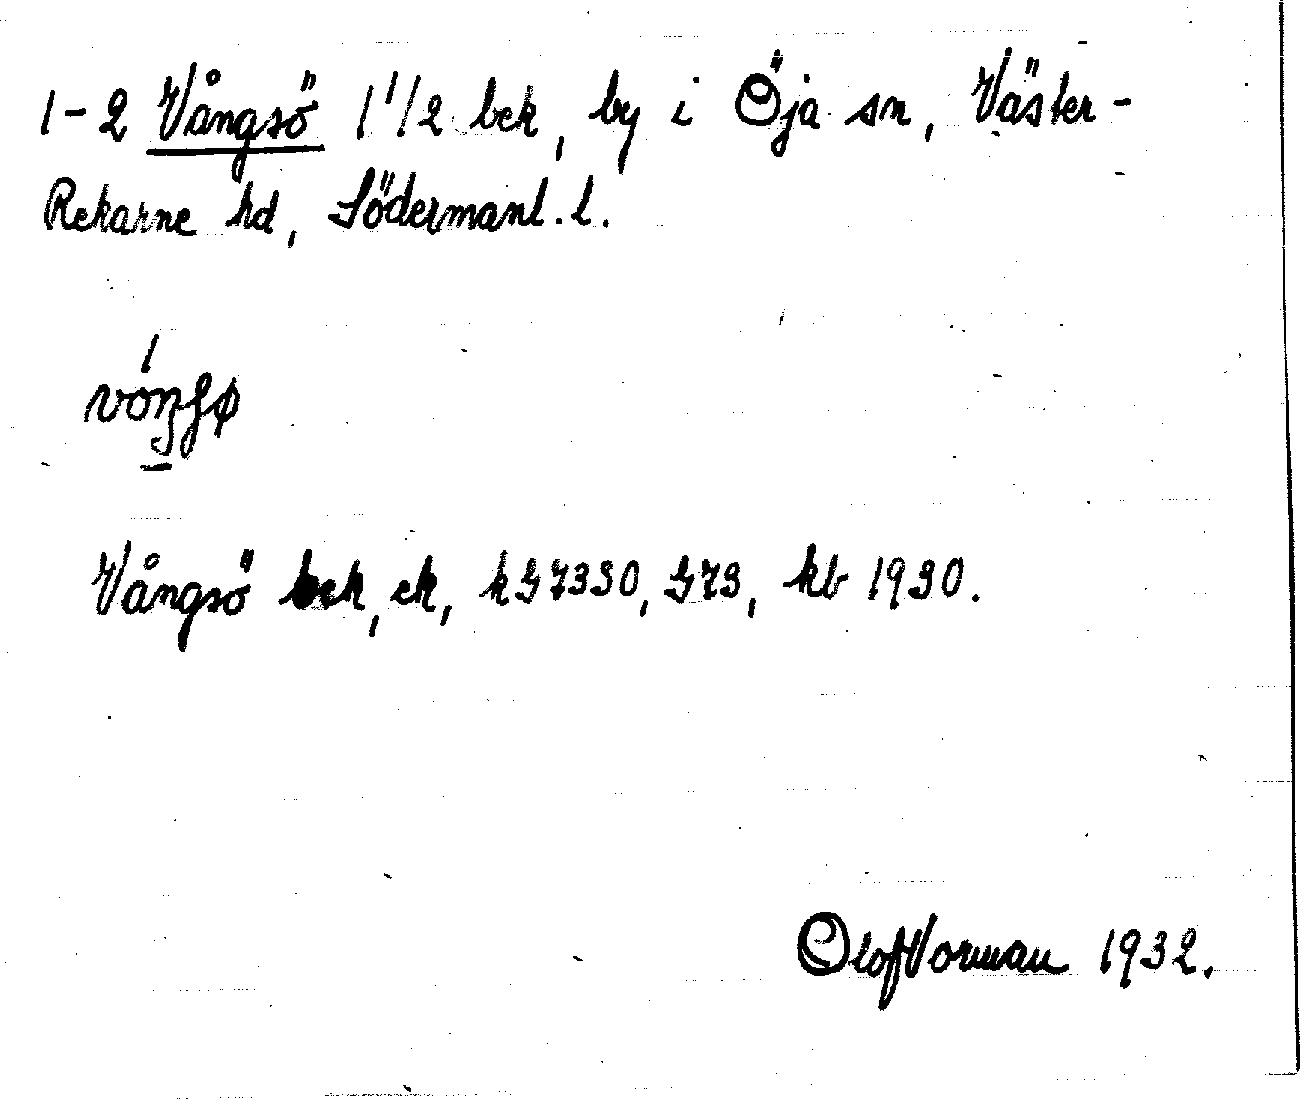 1-2 Vångsö 1 1/2 bek, by i Öja sn, Väster-
Rekarne hd, Södermanl. l.
Vångsö bek, ek, kG7330, G73, kb 1930.
Olof Vorman 1932.